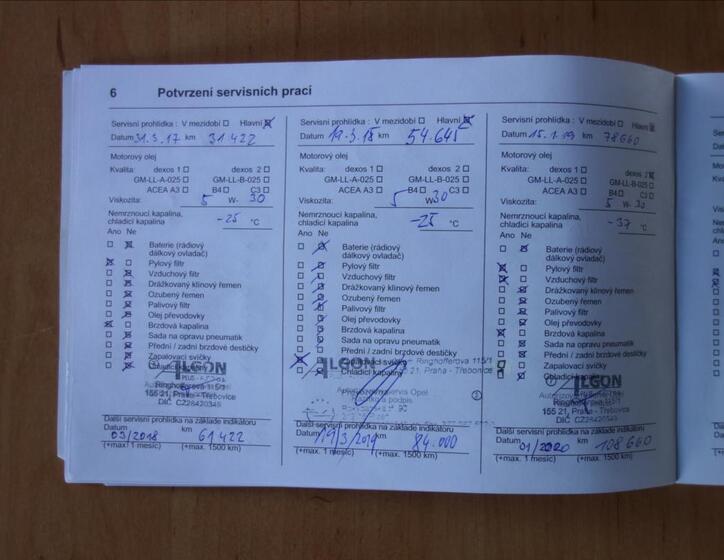 6 Potvrzení servisních prací
Servisní prohlídka : V mezidobí Hlavní
Datum 31.3.17 km 31422
Motorový olej
Kvalita: dexos 1 dexos 2
GM-LL-A-025 GM-LL-B-025
ACEA A3 B4 C3
Viskozita: 5 W- 30
Nemrznoucí kapalina,
chladicí kapalina -25 °C
Ano Ne
Baterie (rádiový
dálkový ovladač)
Pylový filtr
Vzduchový filtr
Drážkovaný klínový řemen
Ozubený řemen
Palivový filtr
Olej převodovky
Brzdová kapalina
Sada na opravu pneumatik
Přední / zadní brzdové destičky
Zapalovací svíčky
ALGON
Ringhofferova 115/1
155 21, Praha - Třebovice
DIČ CZ28420349
Další servisní prohlídka na základě indikátoru
Datum km
03/2018 61422
(+max. 1 měsíc) (+max. 1500 km)
Servisní prohlídka : V mezidobí Hlavní
Datum 19.3.18 km 54.645
Motorový olej
Kvalita: dexos 1 dexos 2
GM-LL-A-025 GM-LL-B-025
ACEA A3 B4 C3
Viskozita: 5 W 30
Nemrznoucí kapalina,
chladicí kapalina -25 °C
Ano Ne
Baterie (rádiový
dálkový ovladač)
Pylový filtr
Vzduchový filtr
Drážkovaný klínový řemen
Ozubený řemen
Palivový filtr
Olej převodovky
Brzdová kapalina
Sada na opravu pneumatik
Přední / zadní brzdové destičky
Zapalovací svíčky
Chladicí kapalina
ALGON Ringhofferova 115/1
21, Praha - Třebonice
servis Opel
a podpis
Další servisní prohlídka na základě indikátoru
Datum km
19/3/2019 84.000
(+max. 1 měsíc) (+max. 1500 km)
Servisní prohlídka : V mezidobí Hlavní
Datum 15.1.19 km 78660
Motorový olej
Kvalita: dexos 1 dexos 2
GM-LL-A-025 GM-LL-B-025
ACEA A3 B4 C3
Viskozita: 5 W- 30
Nemrznoucí kapalina,
chladicí kapalina -37 °C
Ano Ne
Baterie (rádiový
dálkový ovladač)
Pylový filtr
Vzduchový filtr
Drážkovaný klínový řemen
Ozubený řemen
Palivový filtr
Olej převodovky
Brzdová kapalina
Sada na opravu pneumatik
Přední / zadní brzdové destičky
Zapalovací svíčky
Chladicí kapalina
ALGON
Ringhofferova 115/1
155 21, Praha - Třebonice
DIČ CZ28420349
Další servisní prohlídka na základě indikátoru
Datum km
01/2020 108660
(+max. 1 měsíc) (+max. 1500 km)